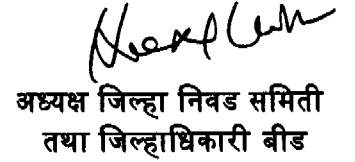 अध्यक्ष जिल्हा निवड समिती
तथा जिल्हाधिकारी बीड